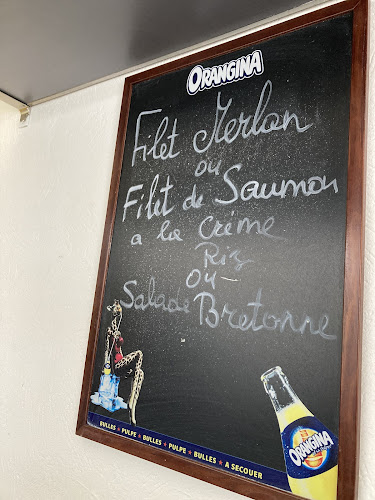 ORANGINA
Filet Merlan
ou
Filet de Saumon
a la Crème
Riz
ou
Salade Bretonne
BULLES ★ PULPE ★ BULLES ★ PULPE ★ BULLES ★ A SECOUER
ORANGINA